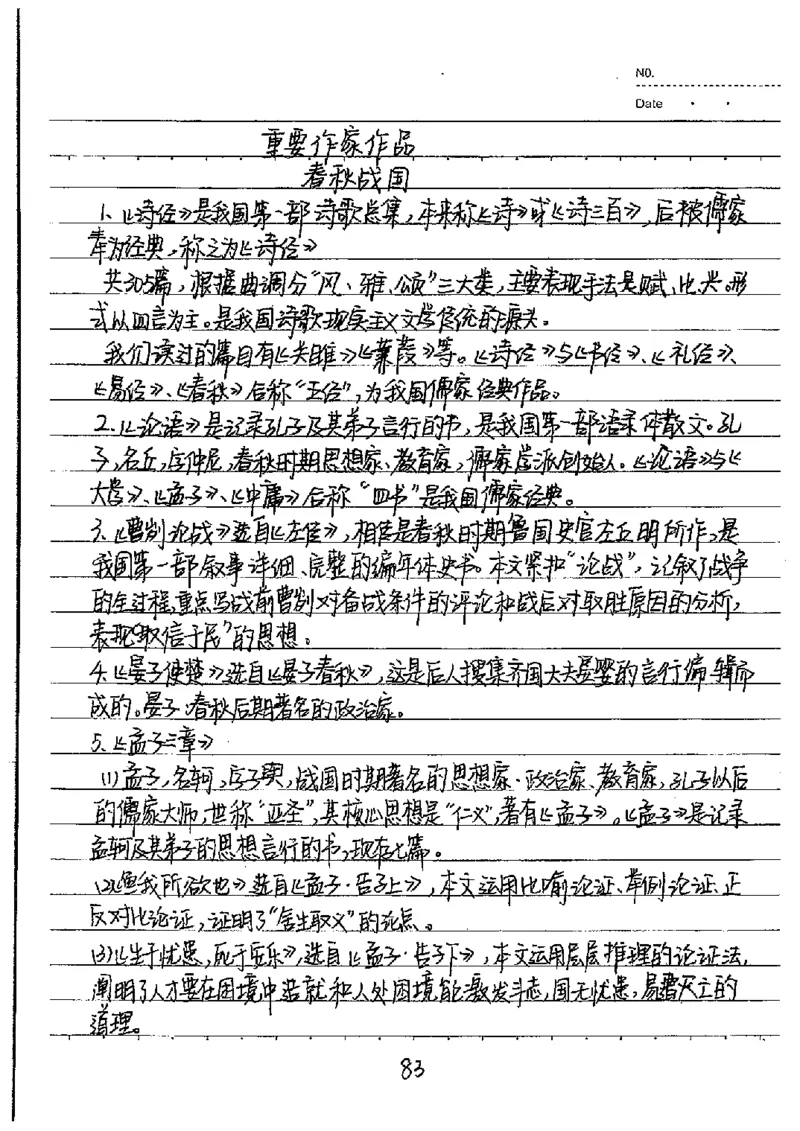 NO.
Date
重要作家作品
春秋战国
1.《诗经》是我国第一部诗歌总集,本来称《诗》或《诗三百》,后被儒家
奉为经典,称之为《诗经》
共305篇,根据曲调分“风、雅、颂”三大类,主要表现手法是赋、比、兴。形
式以四言为主。是我国诗歌现实主义文学传统的源头。
我们读过的篇目有《关雎》《蒹葭》等。《诗经》与《书经》、《礼经》、
《易经》、《春秋》合称“五经”,为我国儒家经典作品。
2.《论语》是记录孔子及其弟子言行的书,是我国第一部语录体散文。孔
子,名丘,字仲尼,春秋时期思想家、教育家,儒家学派创始人。《论语》与《
大学》、《孟子》、《中庸》合称“四书”是我国儒家经典。
3.《曹刿论战》选自《左传》,相传是春秋时期鲁国史官左丘明所作,是
我国第一部叙事详细、完整的编年体史书。本文紧扣“论战”,记叙了战争
的全过程,重点写战前曹刿对备战条件的评论和战后对取胜原因的分析,
表现“取信于民”的思想。
4.《晏子使楚》选自《晏子春秋》,这是后人搜集齐国大夫晏婴的言行编辑而
成的。晏子:春秋后期著名的政治家。
5.《孟子二章》
(1)孟子,名轲,字子舆,战国时期著名的思想家·政治家、教育家,孔子以后
的儒家大师,世称“亚圣”,其核心思想是“仁义”,著有《孟子》。《孟子》是记录
孟轲及其弟子的思想言行的书,现存七篇。
(2)《鱼我所欲也》选自《孟子·告子上》,本文运用比喻论证、举例论证、正
反对比论证,证明了“舍生取义”的论点。
(3)《生于忧患,死于安乐》,选自《孟子·告子下》,本文运用层层推理的论证法,
阐明了人才要在困境中造就和人处困境能激发斗志,国无忧患,易遭灭亡的
道理。
83